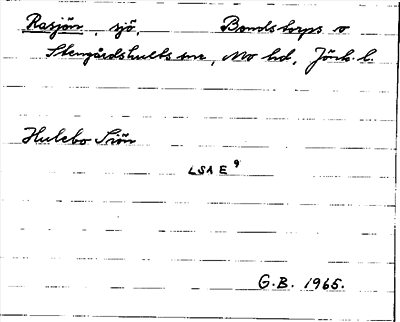 Rasjön, sjö, Bondstorps o
Stengårdshults snr, Mo hd, Jönk. l.
Hulebo Siön
LSA E 9
G.B. 1965.